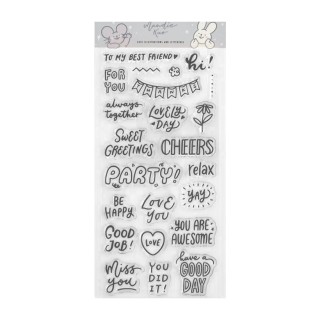 TO MY BEST FRIEND
hi!
FOR
YOU
always
together
LOVELY
DAY
SWEET
GREETINGS
CHEERS
PARTY!
relax
YAY!
BE
HAPPY
LOVE
YOU
YOU ARE
AWESOME
GOOD
JOB!
LOVE
have a
GOOD
DAY
Miss
you
YOU
DID
IT!